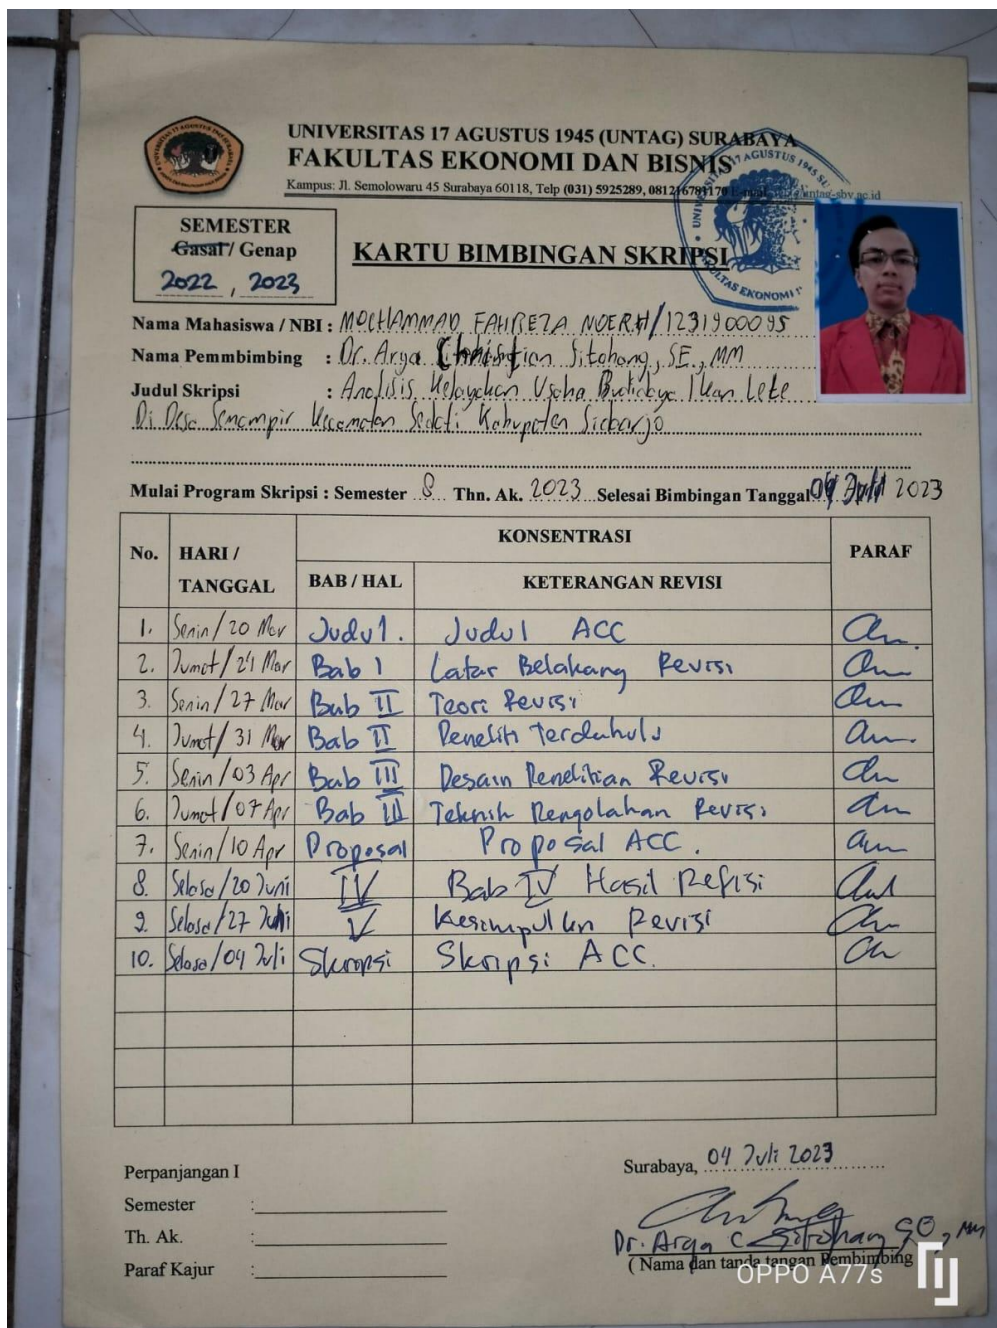 UNIVERSITAS 17 AGUSTUS 1945 (UNTAG) SURABAYA
FAKULTAS EKONOMI DAN BISNIS
Kampus: Jl. Semolowaru 45 Surabaya 60118, Telp (031) 5925289, 081216781170
SEMESTER
Gasal / Genap
2022 , 2023
KARTU BIMBINGAN SKRIPSI
Nama Mahasiswa / NBI : MOCHAMMAD FAHREZA NOERH/1231900095
Nama Pemmbimbing : Dr. Arya Christian Sitohang, SE., MM
Judul Skripsi : Analisis Kelayakan Usaha Budidaya Ikan Lele
Di Desa Semampir Kecamatan Sedati Kabupaten Sidoarjo
Mulai Program Skripsi : Semester 8 Thn. Ak. 2023 Selesai Bimbingan Tanggal 04 2023
No. HARI / TANGGAL KONSENTRASI PARAF
BAB / HAL KETERANGAN REVISI
1. Senin/20 Mar Judul. Judul ACC
2. Jumat/24 Mar Bab I Latar Belakang Revisi
3. Senin/27 Mar Bab II Teori Revisi
4. Jumat/31 Mar Bab II Peneliti Terdahulu
5. Senin/03 Apr Bab III Desain Penelitian Revisi
6. Jumat/07 Apr Bab III Teknik Pengolahan Revisi
7. Senin/10 Apr Proposal Proposal ACC.
8. Selasa/20 Juni IV Bab IV Hasil Refisi
9. Selasa/27 Juni V Kesimpulan Revisi
10. Selasa/04 Juli Skripsi Skripsi ACC.
Perpanjangan I
Semester :
Th. Ak. :
Paraf Kajur :
Surabaya, 04 Juli 2023
Dr. Arya C. Sitohang SE, MM
( Nama dan tanda tangan Pembimbing
OPPO A77s